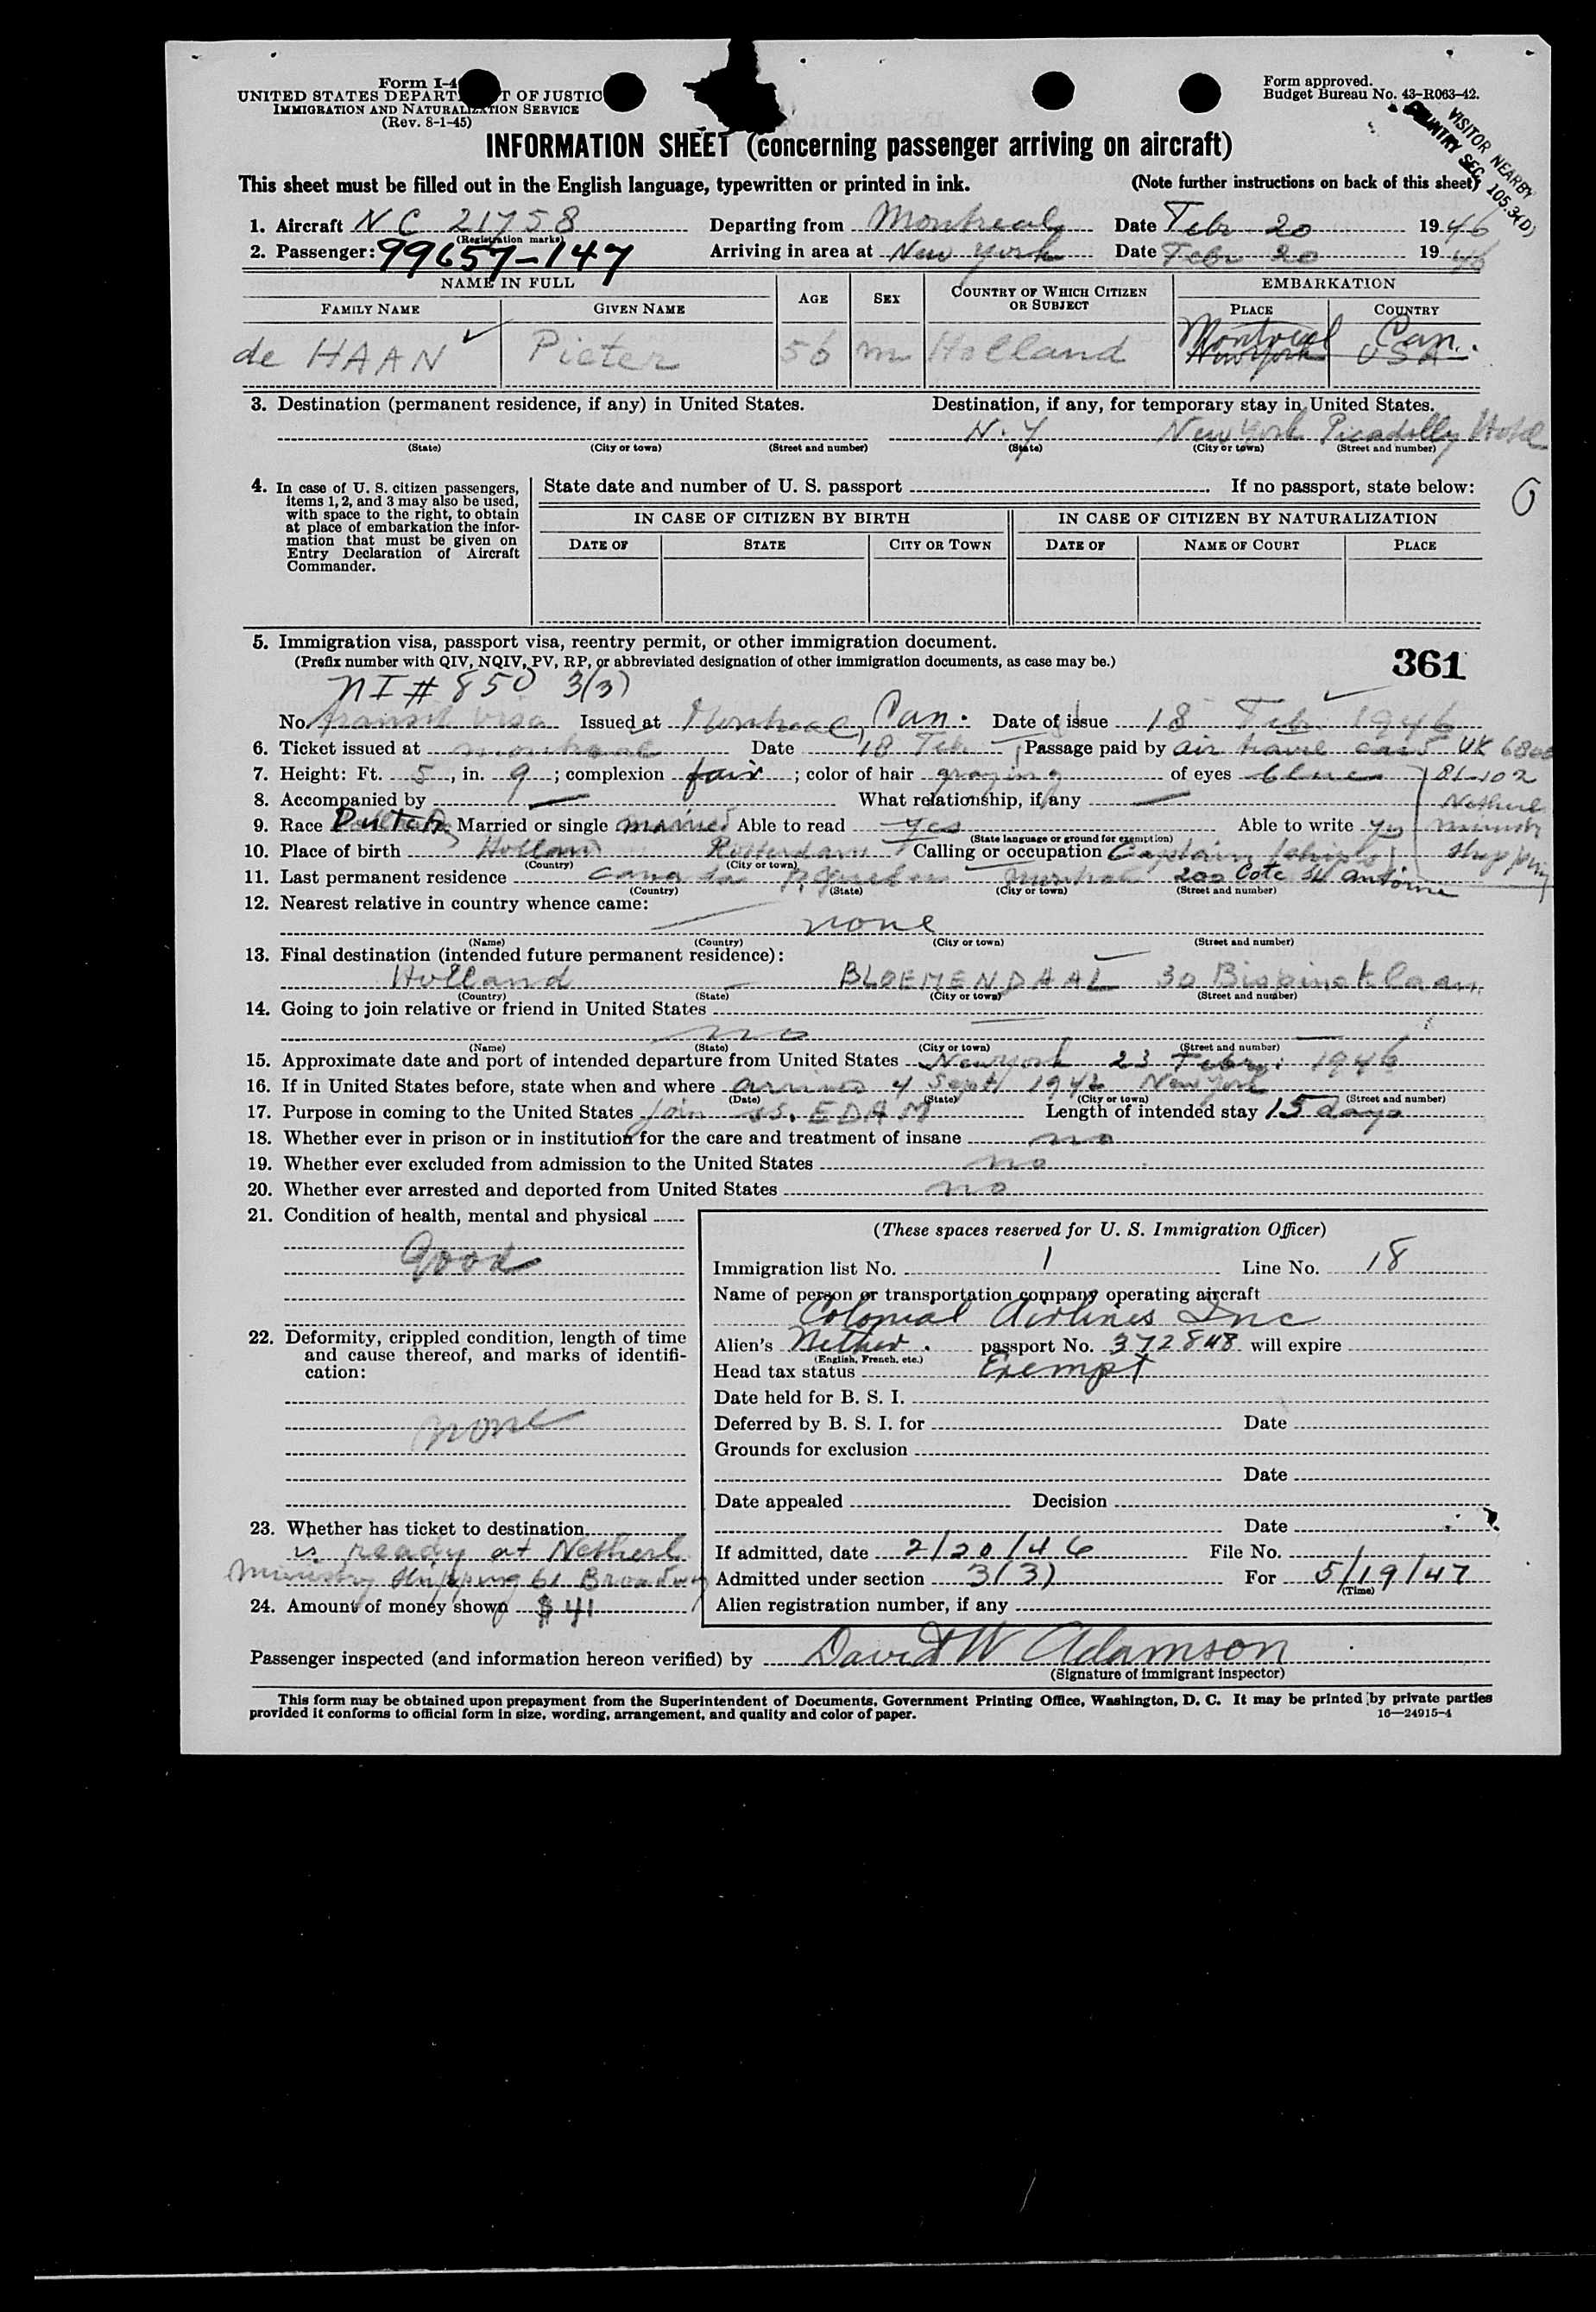 Form I-4
UNITED STATES DEPART T OF JUSTIC
IMMIGRATION AND NATURALIZATION SERVICE
(Rev. 8-1-45)
Form approved.
Budget Bureau No. 43-R063-42.
VISITOR NEARBY
COUNTRY SEC. 105.3(D)
INFORMATION SHEET (concerning passenger arriving on aircraft)
This sheet must be filled out in the English language, typewritten or printed in ink. (Note further instructions on back of this sheet)
1. Aircraft NC 21758 Departing from Montreal Date Febr 20 1946
(Registration marks)
2. Passenger: 99657-147 Arriving in area at New York Date Febr 20 1946
NAME IN FULL AGE SEX COUNTRY OF WHICH CITIZEN OR SUBJECT EMBARKATION
FAMILY NAME GIVEN NAME PLACE COUNTRY
Montreal Can.
de HAAN Pieter 56 m Holland New York USA
3. Destination (permanent residence, if any) in United States. Destination, if any, for temporary stay in United States.
N.Y New York Picadilly Hotel
(State) (City or town) (Street and number) (State) (City or town) (Street and number)
4. In case of U. S. citizen passengers, items 1, 2, and 3 may also be used, with space to the right, to obtain at place of embarkation the information that must be given on Entry Declaration of Aircraft Commander.
State date and number of U. S. passport If no passport, state below:
IN CASE OF CITIZEN BY BIRTH IN CASE OF CITIZEN BY NATURALIZATION
DATE OF STATE CITY OR TOWN DATE OF NAME OF COURT PLACE
5. Immigration visa, passport visa, reentry permit, or other immigration document.
(Prefix number with QIV, NQIV, PV, RP, or abbreviated designation of other immigration documents, as case may be.)
361
NI # 850 3(3)
No. transit visa Issued at Montreal, Can. Date of issue 18 Feb 1946
6. Ticket issued at Montreal Date 18 Feb Passage paid by air travel card UK
7. Height: Ft. 5, in. 9; complexion fair; color of hair graying of eyes blue 81-102
8. Accompanied by — What relationship, if any — Netherl
9. Race Dutch Married or single married Able to read yes Able to write yes ministry
(State language or ground for exemption)
10. Place of birth Holland Rotterdam Calling or occupation Captain (ships) shipping
(Country) (City or town)
11. Last permanent residence Canada Quebec Montreal 200 Cote St Antoine
(Country) (State) (City or town) (Street and number)
12. Nearest relative in country whence came:
none
(Name) (Country) (City or town) (Street and number)
13. Final destination (intended future permanent residence):
Holland — BLOEMENDAAL 30 Bispincklaan
(Country) (State) (City or town) (Street and number)
14. Going to join relative or friend in United States
no
(Name) (State) (City or town) (Street and number)
15. Approximate date and port of intended departure from United States New York 23 Febr. 1946
16. If in United States before, state when and where arrived 4 Sept 1942 New York
(Date) (State) (City or town) (Street and number)
17. Purpose in coming to the United States Join ss. EDAM Length of intended stay 15 days
18. Whether ever in prison or in institution for the care and treatment of insane no
19. Whether ever excluded from admission to the United States no
20. Whether ever arrested and deported from United States no
21. Condition of health, mental and physical
Good
22. Deformity, crippled condition, length of time and cause thereof, and marks of identification:
none
23. Whether has ticket to destination
is ready at Netherl
Ministry Shipping 61 Broadway
24. Amount of money shown $ 41
(These spaces reserved for U. S. Immigration Officer)
Immigration list No. 1 Line No. 18
Name of person or transportation company operating aircraft
Colonial Airlines Inc
Alien's Nether. passport No. 372848 will expire
(English, French, etc.)
Head tax status Exempt
Date held for B. S. I.
Deferred by B. S. I. for Date
Grounds for exclusion
Date
Date appealed Decision
Date
If admitted, date 2/20/46 File No.
Admitted under section 3(3) For 5/19/47
(Time)
Alien registration number, if any
Passenger inspected (and information hereon verified) by David W Adamson
(Signature of immigrant inspector)
This form may be obtained upon prepayment from the Superintendent of Documents, Government Printing Office, Washington, D. C. It may be printed by private parties
provided it conforms to official form in size, wording, arrangement, and quality and color of paper. 16—24915-4